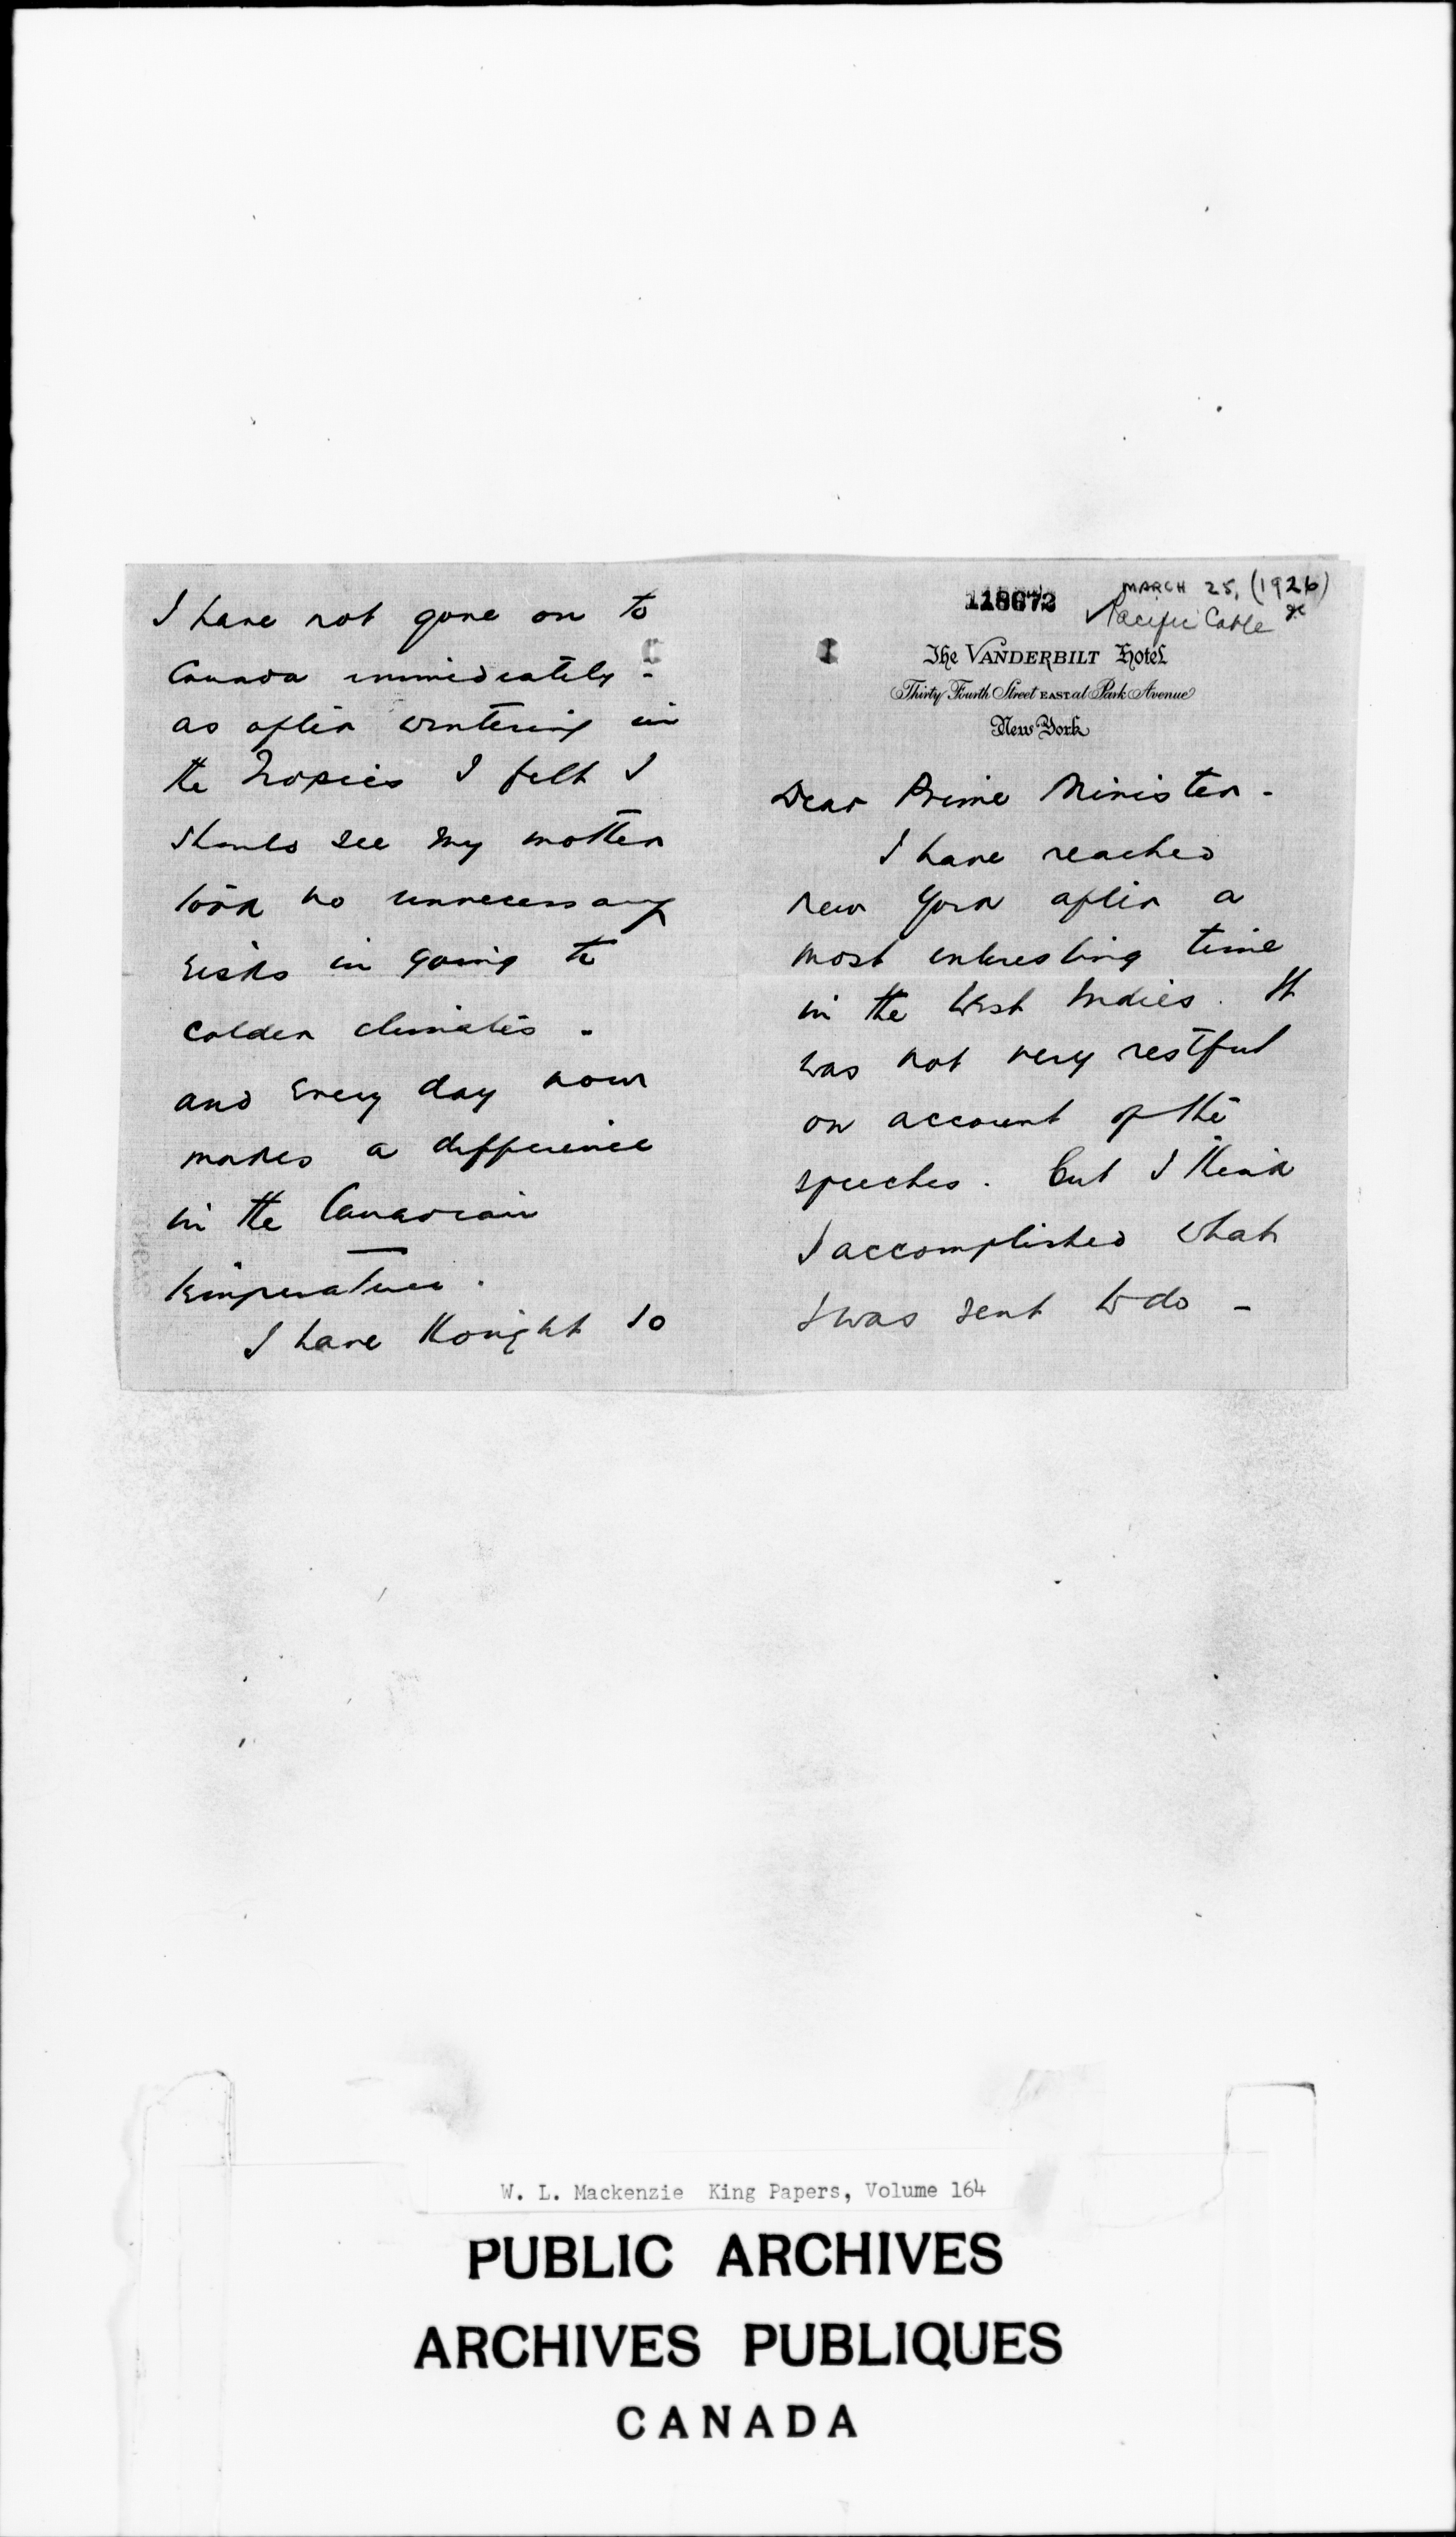 MARCH 25, (1926)
Pacific Cable
The VANDERBILT Hotel
Thirty Fourth Street EAST at Park Avenue
New York
Dear Prime Minister -
I have reached
New York after a
most interesting time
in the West Indies. It
was not very restful
on account of the
speeches. But I think
I accomplished what
I was sent to do -
I have not gone on to
Canada immediately -
as after wintering in
the Tropics I felt I
should see my mother
took no unnecessary
risks in going to
colder climates -
and every day now
makes a difference
in the Canadian
temperature.
I have thought so
W. L. Mackenzie King Papers, Volume 164
PUBLIC ARCHIVES
ARCHIVES PUBLIQUES
CANADA